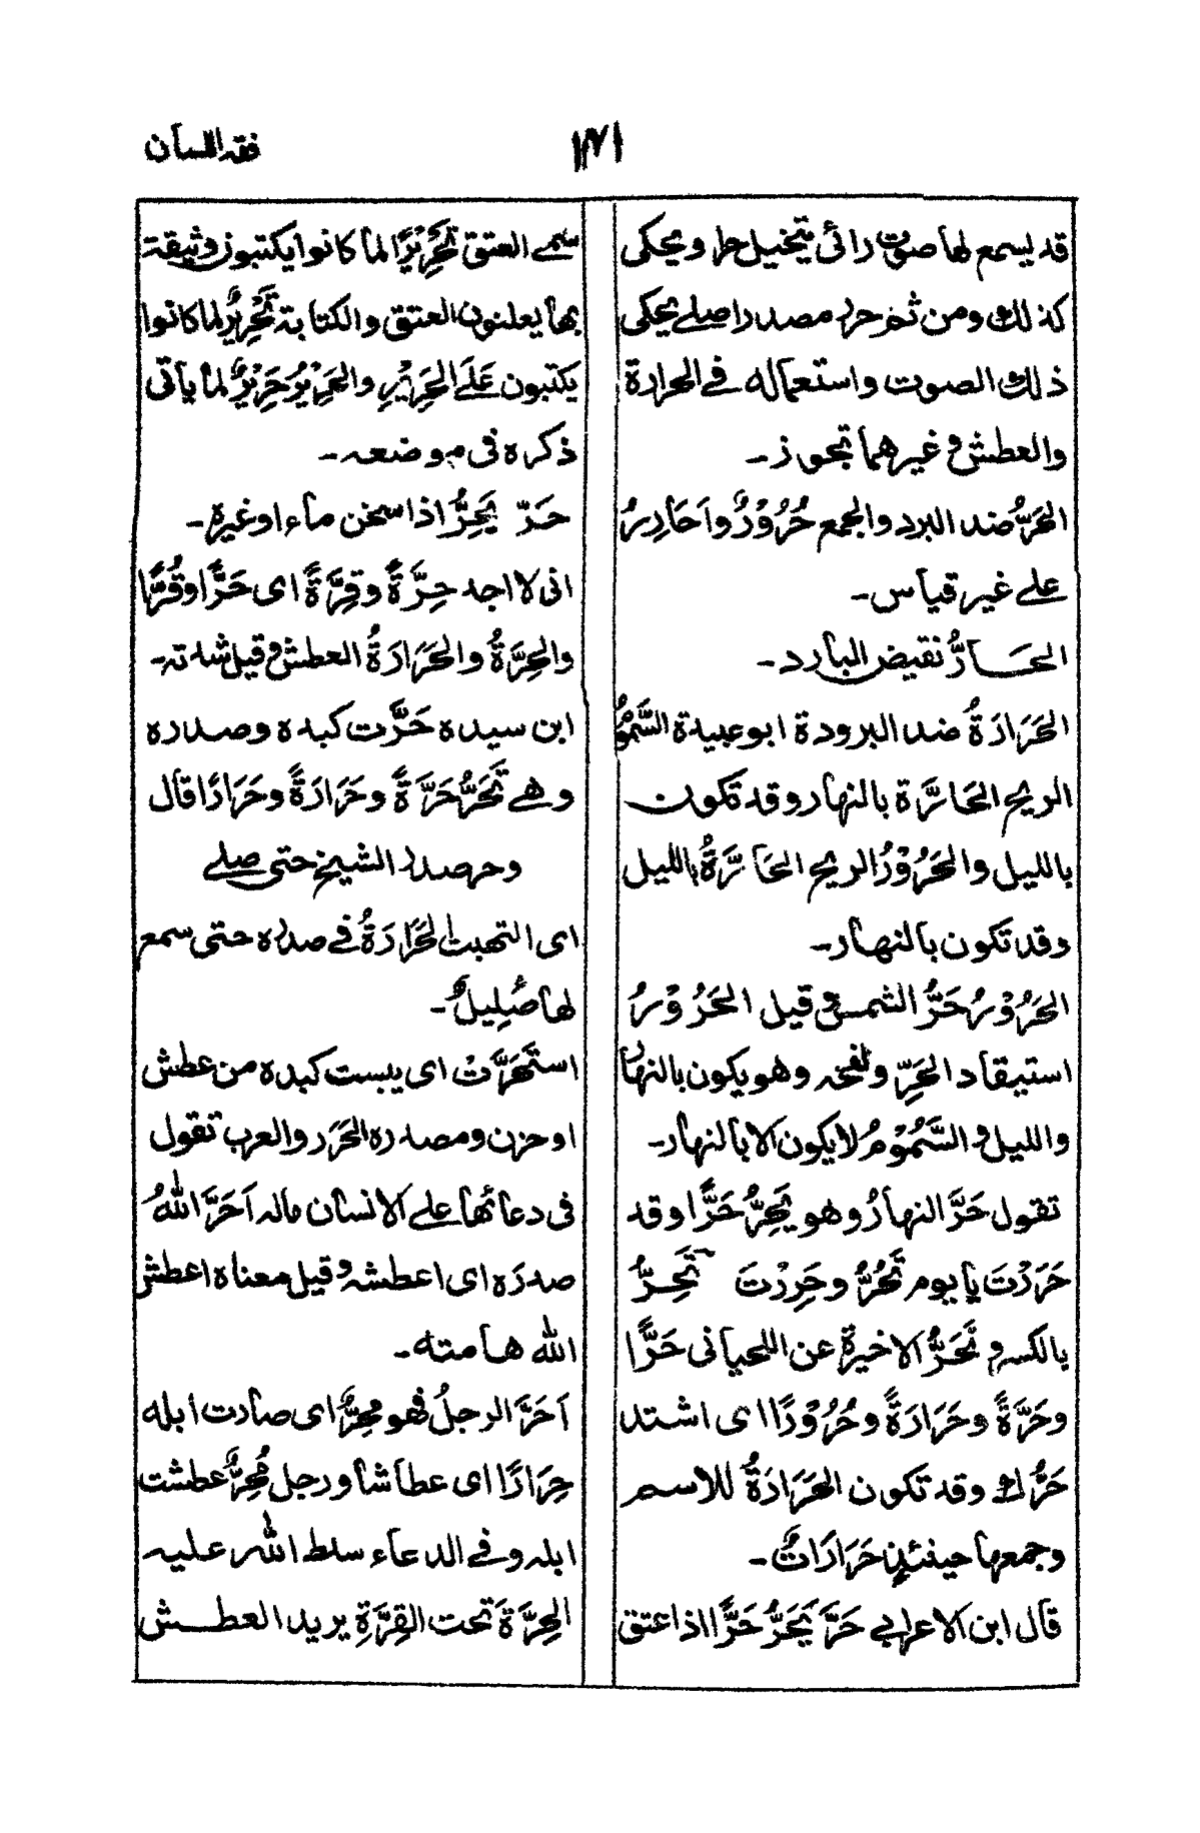 فقه اللسان
١٧١
قد يسمع لها صوت رائى يتخيل حر ويحكى
كذلك ومن ثم حر مصدر اصلے يحكى
ذلك الصوت واستعماله فے الحرارة
والعطش وغيرهما تجوز۔
الحَرُّ ضد البرد والجمع حُرُوْرٌ واَحَارِرُ
علے غير قياس۔
الحَارُّ نقيض البارد۔
الحَرَارَةُ ضد البرودة ابو عبيدة السَّمُوْمُ
الريح الحَارَّة بالنهار وقد تكون
بالليل والحَرُوْرُ الريح الحَارَّةُ بالليل
وقد تكون بالنهار۔
الحَرُوْرُ حَرُّ الشمس وقيل الحَرُوْرُ
استيقاد الحَرِّ ولفحه وهو يكون بالنهار
والليل والسَّمُوْمُ لا يكون الا بالنهار۔
تقول حَرَّ النهارُ وهو يَحِرُّ حَرًّا وقد
حَرَرْتَ يا يوم تَحُرُّ وحَرِرْتَ تَحِرُّ
بالكسر وتَحَرُّ الاخيرة عن اللحيانى حَرًّا
وحَرَّةً وحَرَارَةً وحُرُوْرًا اى اشتد
حَرُّك وقد تكون الحَرَارَةُ للاسم
وجمعها حينئذٍ حَرَارَاتٌ۔
قال ابن الاعرابے حَرَّ يَحَرُّ حَرًّا اذا عتق
سمے العتق تَحْرِيْرًا لما كانوا يكتبون وثيقة
بها يعلنون العتق والكتابة تَحْرِيْرٌ لما كانوا
يكتبون عَلَے الحَرِيْرِ والحَرِيْرُ حَرِيْرٌ لما ياتى
ذكره فى موضعه۔
حَرّ يَحِرُّ اذا سخن ماء او غيره۔
انى لا اجد حِرَّةً وقِرَّةً اى حَرًّا وقُرًّا
والحِرَّةُ والحَرَارَةُ العطش وقيل شدته۔
ابن سيده حَرَّت كبده وصدره
وهے تَحَرُّ حَرَّةً وحَرَارَةً وحَرَارًا قال
وحر صدر الشيخ حتى صلے
اى التهبت الحَرَارَةُ فے صدره حتى سمع
لها صَلِيلٌ۔
استَحَرَّتْ اى يبست كبده من عطش
او حزن ومصدره الحَرَر والعرب تقول
فى دعائها علے الانسان ماله اَحَرَّ اللهُ
صدرَه اى اعطشه وقيل معناه اعطش
الله هامته۔
اَحَرَّ الرجلُ فهو مُحِرٌّ اى صارت ابله
حِرَارًا اى عطاشا ورجل مُحِرٌّ عطشت
ابله وفے الدعاء سلط الله عليه
الحِرَّةَ تحت القِرَّةِ يريد العطش